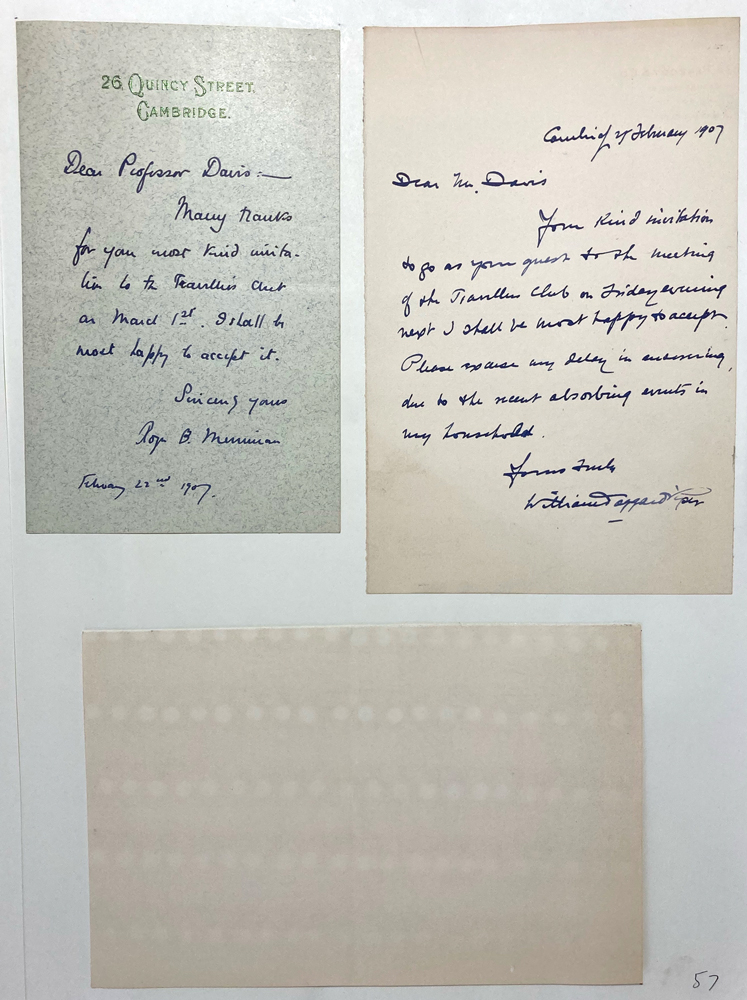 26, QUINCY STREET,
CAMBRIDGE.
Dear Professor Davis:—
Many thanks
for your most kind invita-
tion to the Travellers Club
on March 1st. I shall be
most happy to accept it.
Sincerely yours
Roger B. Merriman
February 22nd 1907.
February 1907
Dear Mr. Davis
Your kind invitation
to go as your guest to the meeting
of the Travellers Club on Friday evening
next I shall be most happy to accept.
Please excuse my delay in answering,
due to the recent absorbing events in
my household.
Yours truly
William
57